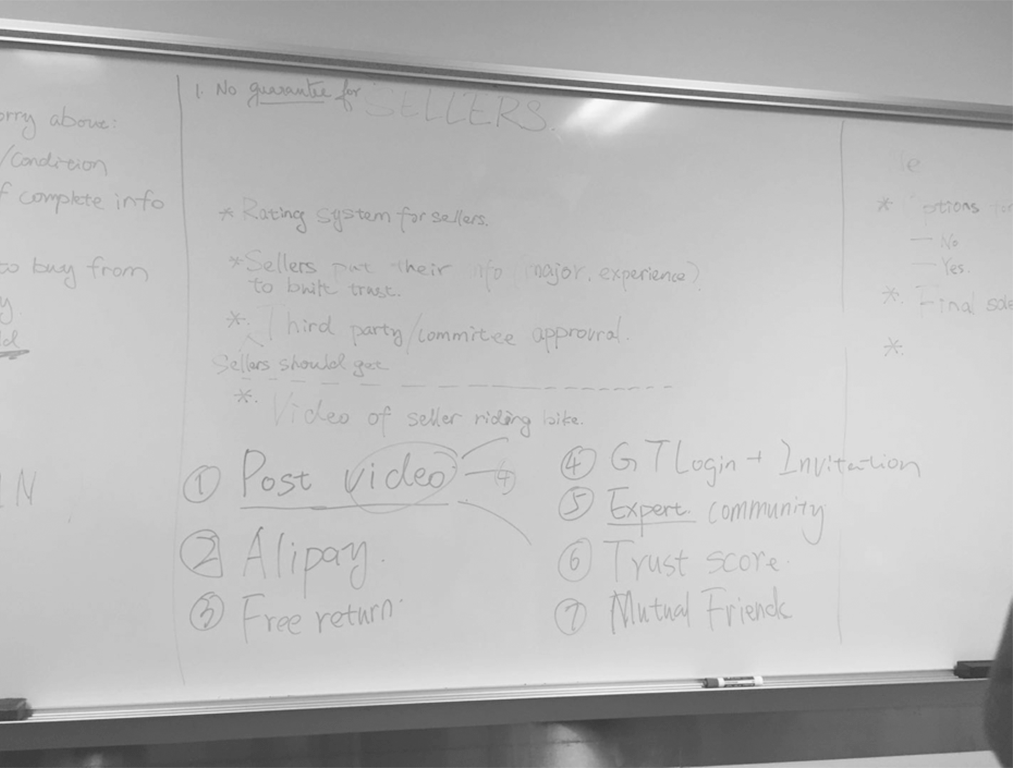 orry above:
/Condition
f complete info
to buy from
y
ld
IN
1. No guarantee for SELLERS.
* Rating system for sellers.
* Sellers put their info (major, experience)
to built trust.
*. Third party/committee approval.
Sellers should get
*. Video of seller riding bike.
① Post video ④
② Alipay.
③ Free return.
④ GT Login + Invitation
⑤ Expert. community
⑥ Trust score.
⑦ Mutual Friends
le
* Options for
— No
— Yes.
*. Final sale
*.